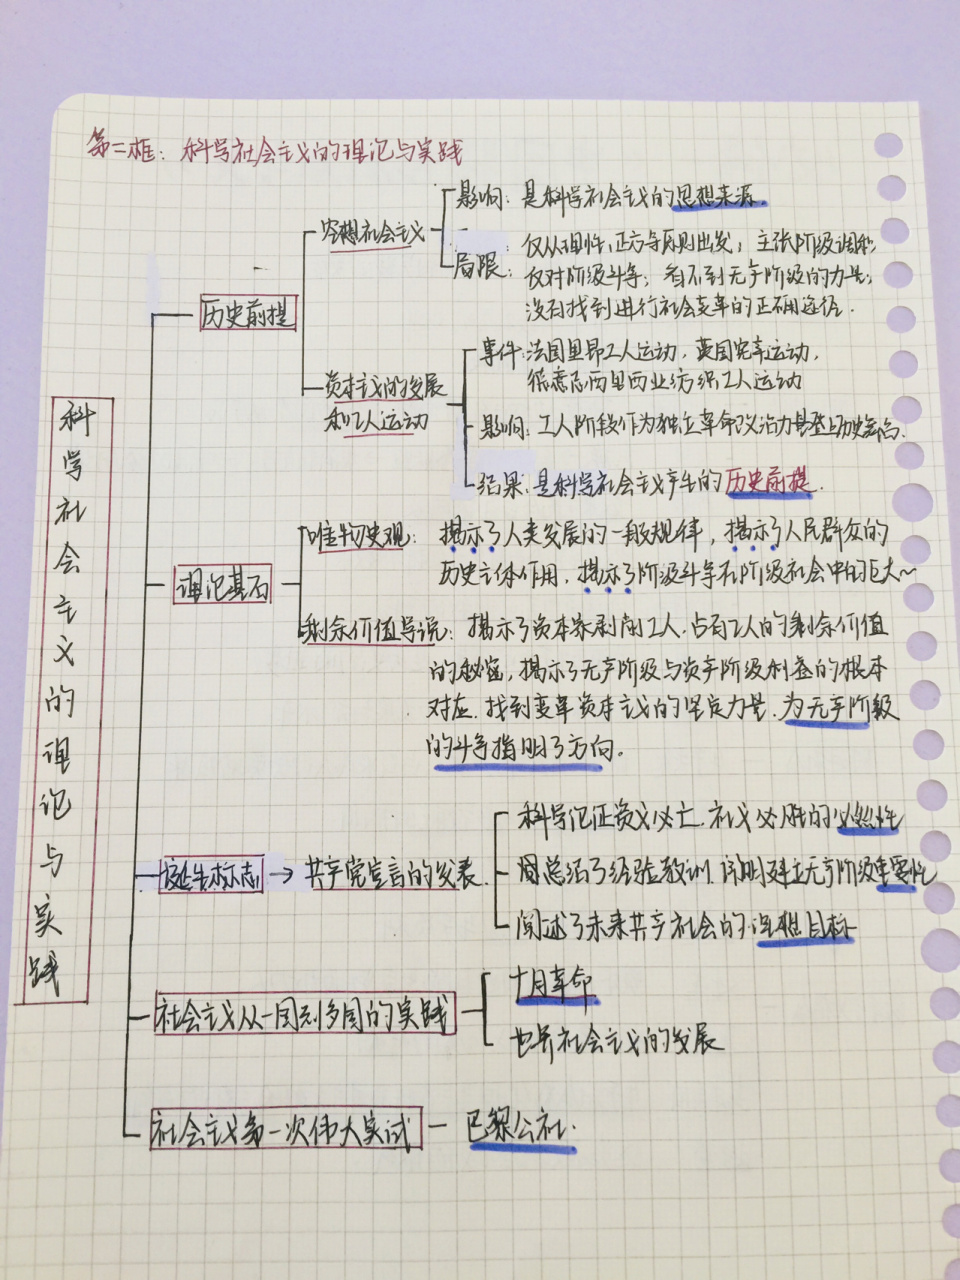 第二框：科学社会主义的理论与实践
科学社会主义的理论与实践
历史前提
空想社会主义
影响：是科学社会主义的思想来源.
局限：
仅从理性，正方等原则出发；主张阶级调和，
仅对阶级斗争；看不到无产阶级的力量；
没有找到进行社会变革的正确途径.
资本主义的发展
和工人运动
事件：法国里昂工人运动，英国宪章运动，
德意志西里西亚纺织工人运动
影响：工人阶级作为独立革命政治力量登上历史舞台.
结果：是科学社会主义产生的历史前提.
理论基石
唯物史观：揭示了人类发展的一般规律，揭示了人民群众的
历史主体作用，揭示了阶级斗争在阶级社会中的巨大～
剩余价值学说：揭示了资本家剥削工人.占有工人的剩余价值
的秘密，揭示了无产阶级与资产阶级利益的根本
对应.找到变革资本主义的坚定力量.为无产阶级
的斗争指明了方向.
诞生标志→共产党宣言的发表
科学论证资义必亡.社义必胜的必然性
总结了经验教训.阐明建立无产阶级重要性
阐述了未来共产社会的理想目标
社会主义从一国到多国的实践
十月革命
世界社会主义的发展
社会主义第一次伟大尝试—巴黎公社.